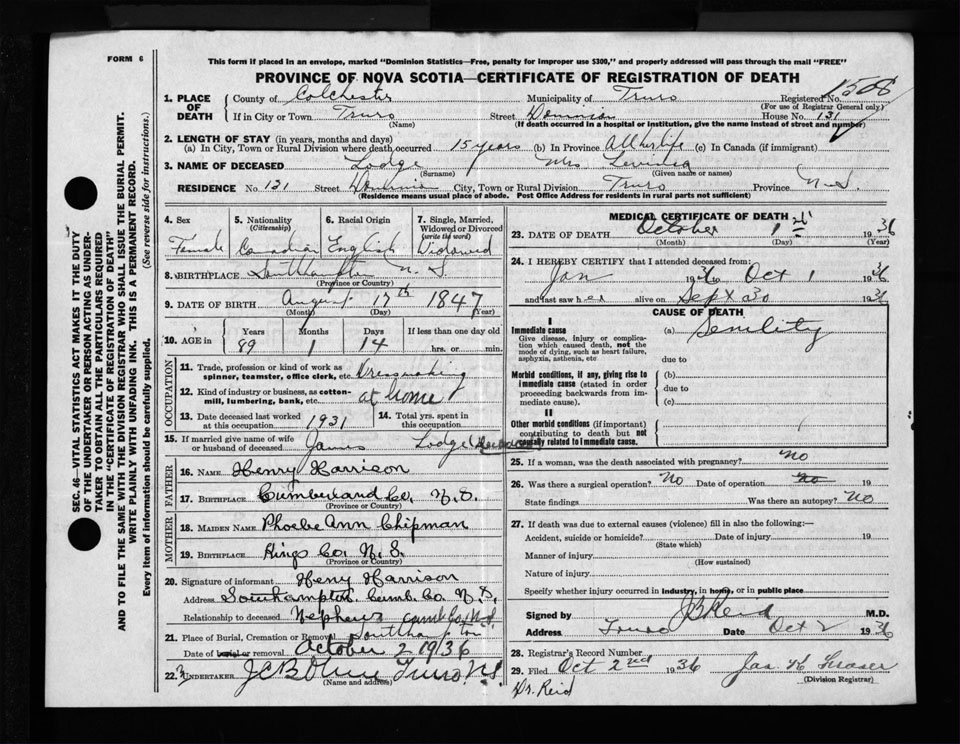 FORM 6
This form if placed in an envelope, marked "Dominion Statistics—Free, penalty for improper use $300," and properly addressed will pass through the mail "FREE"
PROVINCE OF NOVA SCOTIA—CERTIFICATE OF REGISTRATION OF DEATH
1508
1. PLACE OF DEATH
County of Colchester Municipality of Truro Registered No.
(For use of Registrar General only.)
If in City or Town Truro Street Dominion House No. 131
(Name) (If death occurred in a hospital or institution, give the name instead of street and number)
2. LENGTH OF STAY (in years, months and days)
(a) In City, Town or Rural Division where death occurred 15 years (b) In Province All her life (c) In Canada (if immigrant)
3. NAME OF DECEASED Lodge Mrs
(Surname) (Given name or names)
RESIDENCE No. 131 Street Dominion City, Town or Rural Division Truro Province N.S.
(Residence means usual place of abode. Post Office Address for residents in rural parts not sufficient)
4. Sex 5. Nationality 6. Racial Origin 7. Single, Married, Widowed or Divorced
(Citizenship) (write the word)
Female Canadian English Widowed
8. BIRTHPLACE Southampton N.S
(Province or Country)
9. DATE OF BIRTH August 17th 1847
(Month) (Day) (Year)
10. AGE in Years Months Days If less than one day old
89 1 14 hrs. or min.
OCCUPATION
11. Trade, profession or kind of work as spinner, teamster, office clerk, etc. Dressmaking
12. Kind of industry or business, as cotton-mill, lumbering, bank, etc. at home
13. Date deceased last worked at this occupation 1931 14. Total yrs. spent in this occupation
15. If married give name of wife or husband of deceased James Lodge (deceased)
FATHER
16. NAME Henry Harrison
17. BIRTHPLACE Cumberland Co. N.S.
(Province or Country)
MOTHER
18. MAIDEN NAME Phoebe Ann Chipman
19. BIRTHPLACE Kings Co. N.S.
(Province or Country)
20. Signature of informant Henry Harrison
Address Southampton Cumb. Co. N.S.
Relationship to deceased Nephew
21. Place of Burial, Cremation or Removal Southampton Cumb Co. N.S.
Date of burial or removal October 2 1936
22. UNDERTAKER J C B Truro N.S.
(Name and address)
MEDICAL CERTIFICATE OF DEATH
23. DATE OF DEATH October 1st 1936
(Month) (Day) (Year)
24. I HEREBY CERTIFY that I attended deceased from:
Jan 1936 to Oct 1 1936
and last saw her alive on Sept 30 1936
CAUSE OF DEATH
I
Immediate cause (a) Senility
Give disease, injury or complication which caused death, not the mode of dying, such as heart failure, asphyxia, asthenia, etc
due to
Morbid conditions, if any, giving rise to immediate cause (stated in order proceeding backwards from immediate cause).
(b)
due to
(c)
II
Other morbid conditions (if important) contributing to death but not causally related to immediate cause.
25. If a woman, was the death associated with pregnancy? no
26. Was there a surgical operation? No Date of operation no 19
State findings Was there an autopsy? No
27. If death was due to external causes (violence) fill in also the following:—
Accident, suicide or homicide? Date of injury 19
(State which)
Manner of injury
(How sustained)
Nature of injury
Specify whether injury occurred in industry, in home, or in public place
Signed by J B Reid M.D.
Address Truro Date Oct 2 1936
28. Registrar's Record Number
29. Filed Oct 2nd 1936 Jas. H Fraser
(Division Registrar)
Dr. Reid
SEC. 46—VITAL STATISTICS ACT MAKES IT THE DUTY OF THE UNDERTAKER OR PERSON ACTING AS UNDERTAKER TO OBTAIN ALL THE PARTICULARS REQUIRED IN THE "CERTIFICATE OF REGISTRATION OF DEATH" AND TO FILE THE SAME WITH THE DIVISION REGISTRAR WHO SHALL ISSUE THE BURIAL PERMIT.
WRITE PLAINLY WITH UNFADING INK. THIS IS A PERMANENT RECORD.
Every item of information should be carefully supplied. (See reverse side for instructions.)